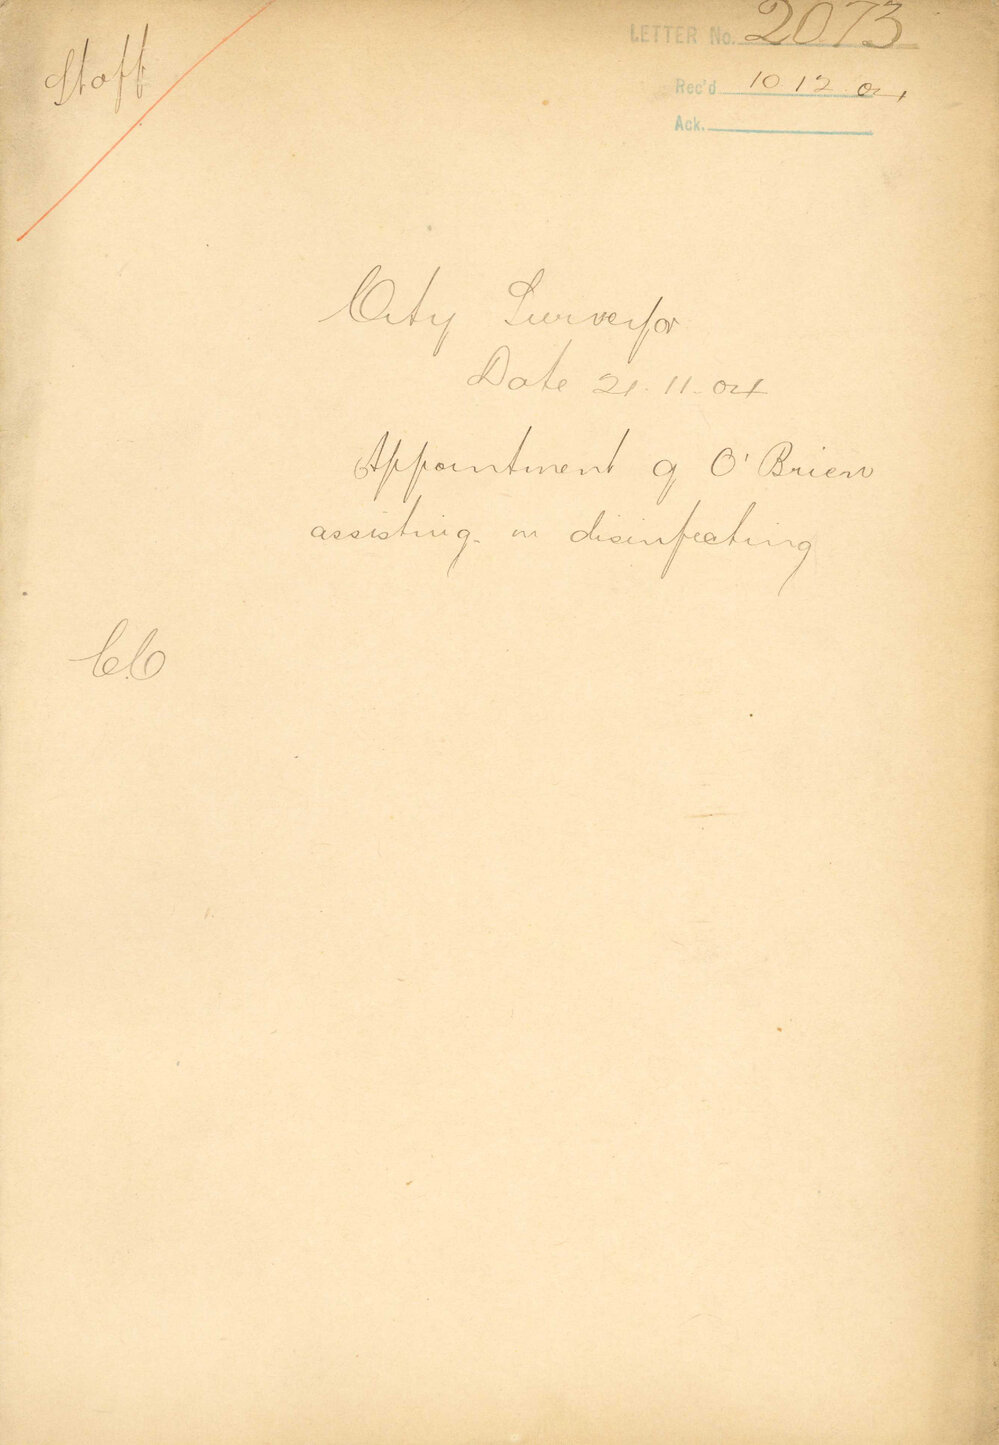 Staff
LETTER No. 2073
Rec'd 10 12 04
Ack.
City Surveyor
Date 21.11.04
Appointment of O'Brien
assisting in disinfecting
C.C